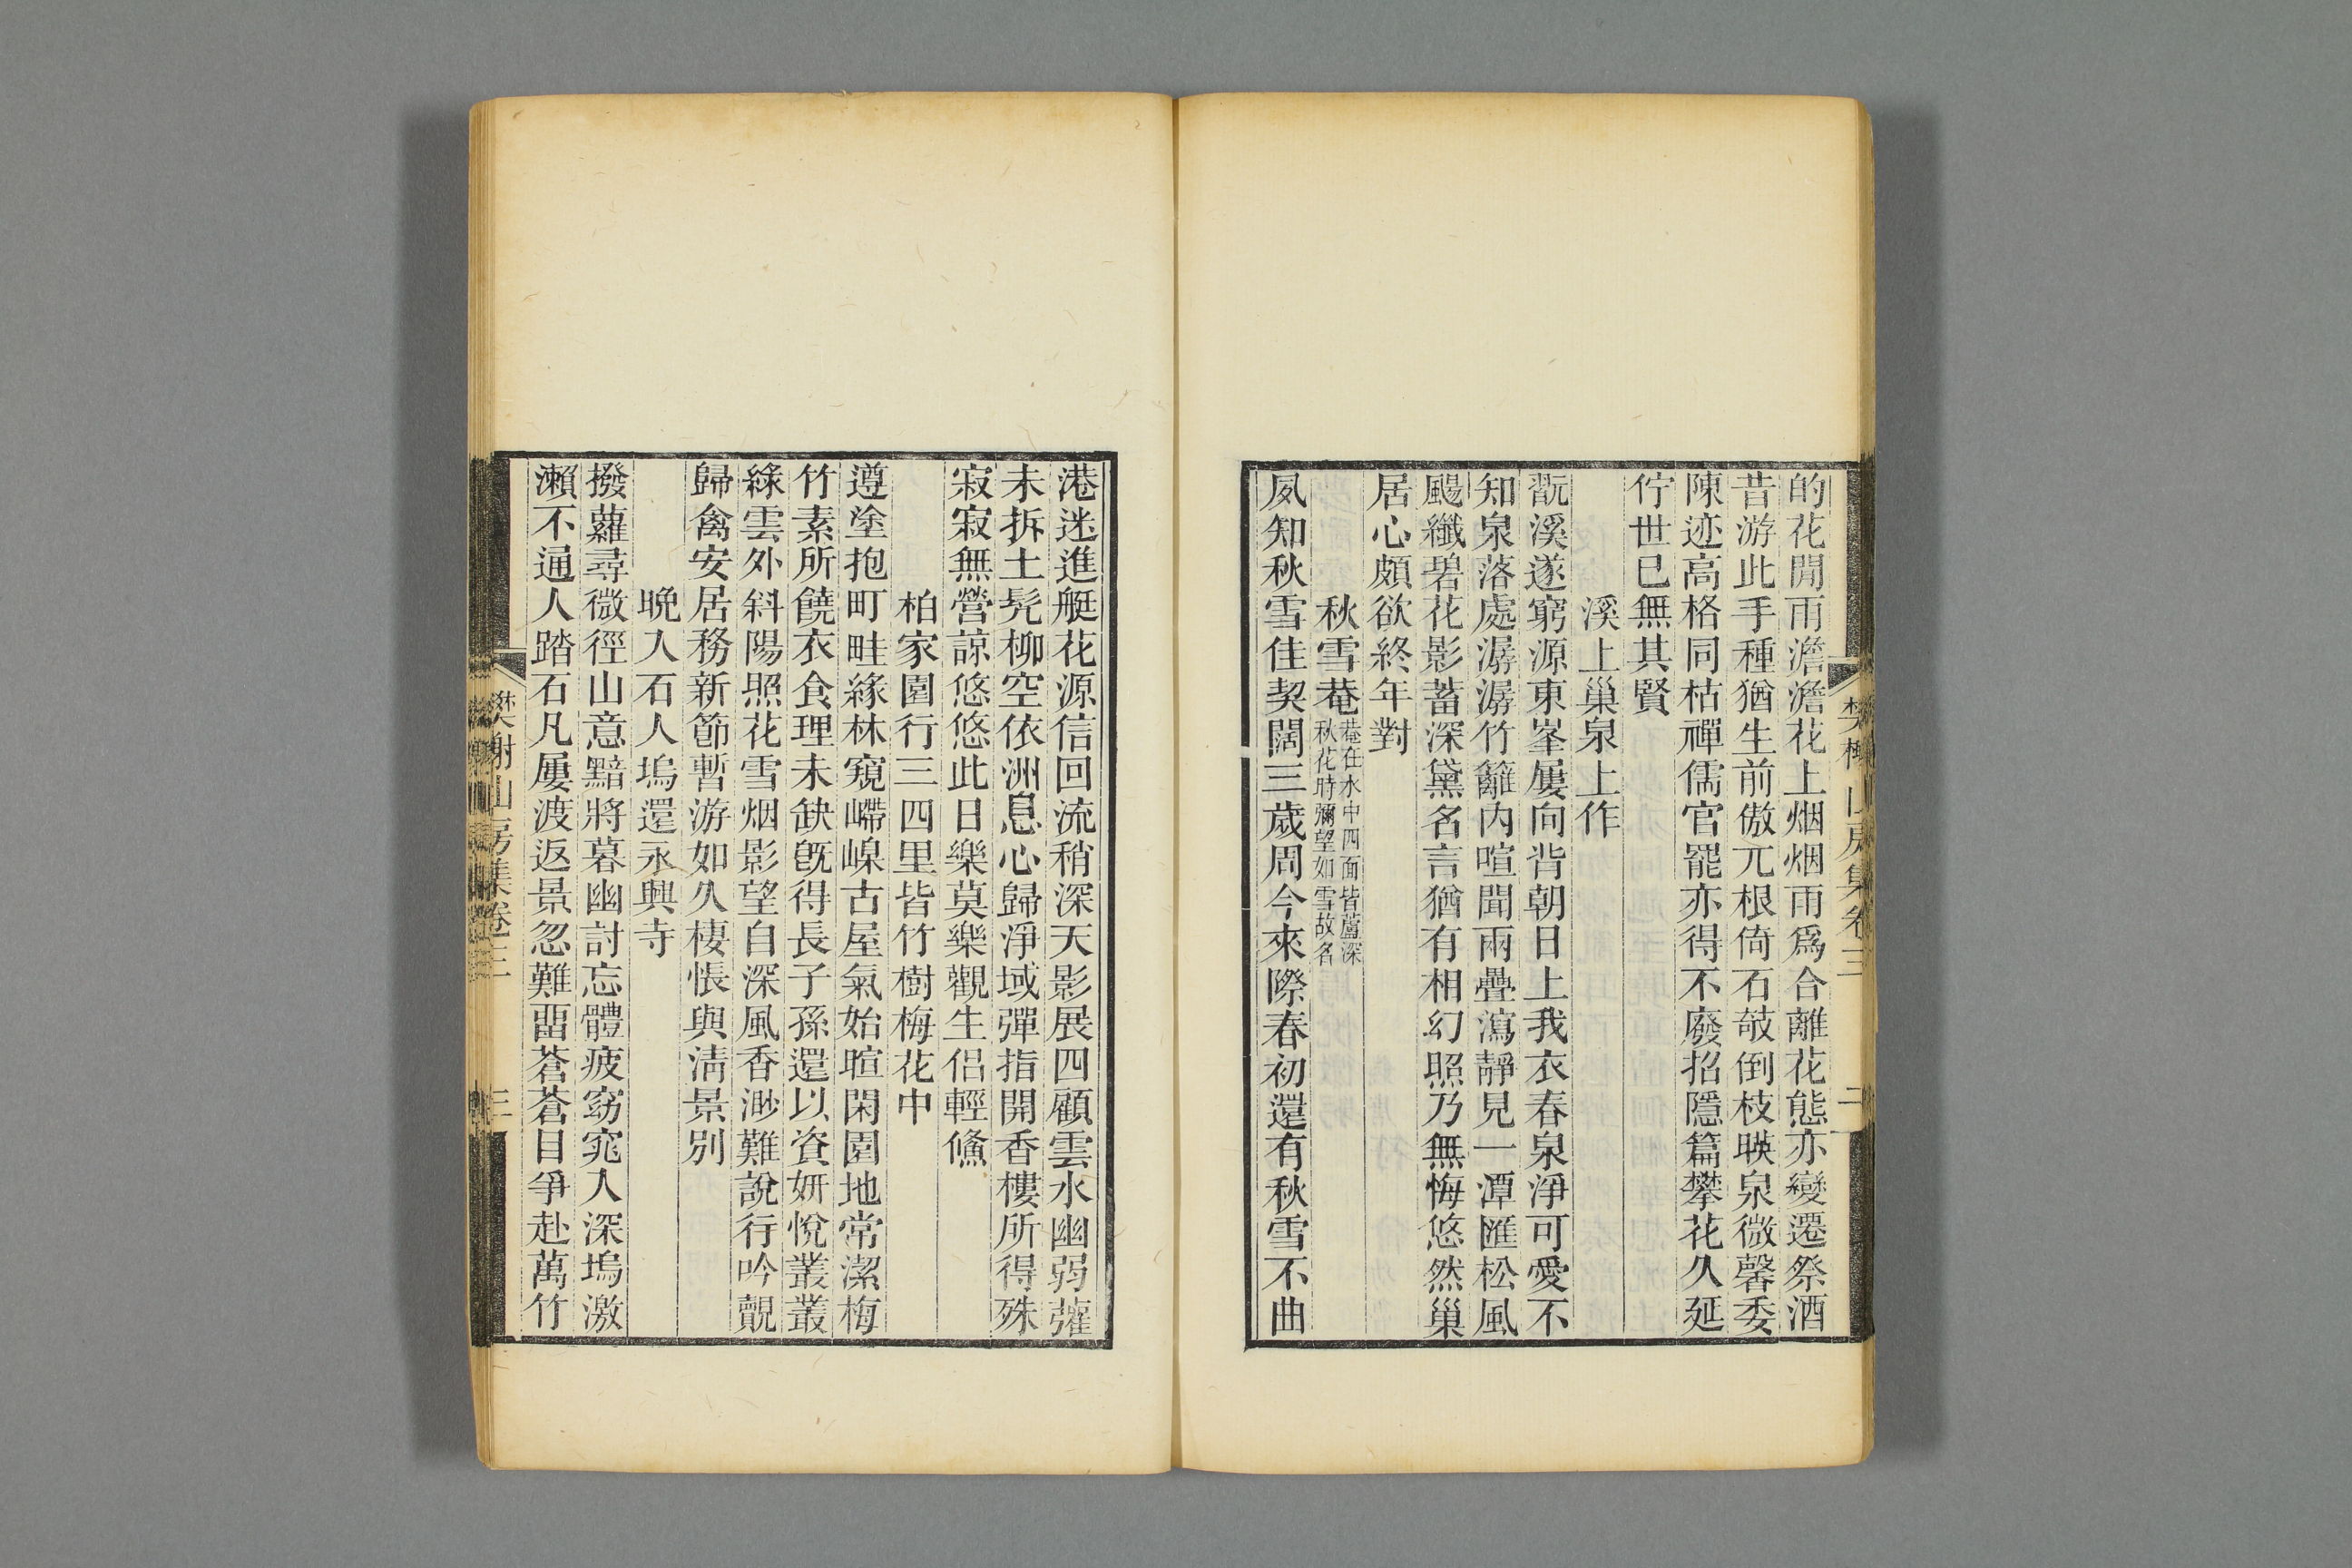 樊榭山房集卷三
二
的花閒雨澹澹花上烟烟雨爲合離花態亦變遷祭酒
昔游此手種猶生前傲兀根倚石攲倒枝暎泉微馨委
陳迹高格同枯禪儒官罷亦得不廢招隱篇攀花久延
佇世已無其賢
溪上巢泉上作
翫溪遂窮源東峯屢向背朝日上我衣春泉淨可愛不
知泉落處潺潺竹籬內喧聞兩疊瀉靜見一潭匯松風
颺纖碧花影蓄深黛名言猶有相幻照乃無悔悠然巢
居心頗欲終年對
秋雪菴菴在水中四面皆蘆深
秋花時彌望如雪故名
夙知秋雪佳契闊三歲周今來際春初還有秋雪不曲
港迷進艇花源信回流稍深天影展四顧雲水幽弱蘿
未拆土髠柳空依洲息心歸淨域彈指開香樓所得殊
寂寂無營諒悠悠此日樂莫樂觀生侶輕鯈
柏家園行三四里皆竹樹梅花中
遵塗抱町畦緣林窺嵽嵲古屋氣始暄閑園地常潔梅
竹素所饒衣食理未缺旣得長子孫還以資妍悅叢叢
綠雲外斜陽照花雪烟影望自深風香渺難說行吟覿
歸禽安居務新節暫游如久棲悵與淸景別
晚入石人塢還永興寺
撥蘿尋微徑山意黯將暮幽討忘體疲窈窕入深塢激
瀨不通人踏石凡屢渡返景忽難畱蒼蒼目爭赴萬竹
樊榭山房集卷三
三